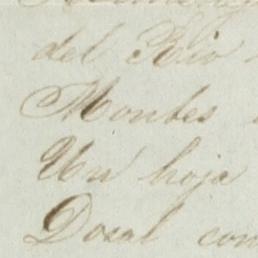 del Rio
Montes
Un hoja
Dosal con